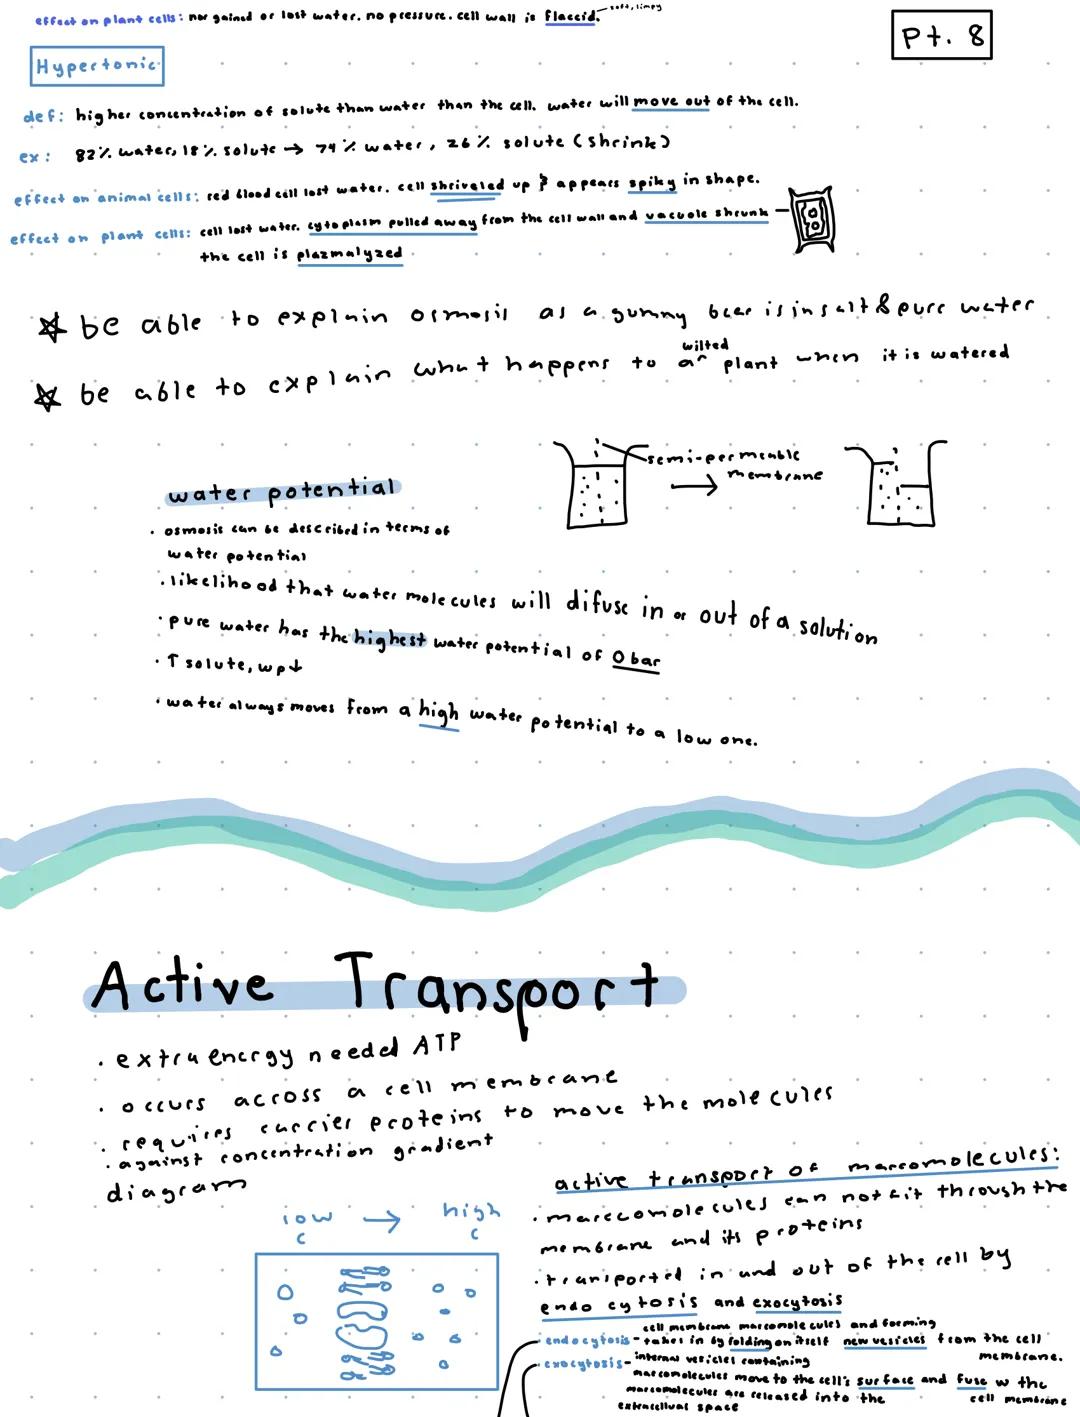 effect on plant cells: nor gained or lost water. no pressure. cell wall is flaccid. soft, limpy
Pt. 8
Hypertonic
def: higher concentration of solute than water than the cell. water will move out of the cell.
ex: 82% water, 18% solute → 74% water, 26% solute (shrink)
effect on animal cells: red blood cell lost water. cell shriveled up & appears spiky in shape.
effect on plant cells: cell lost water. cytoplasm pulled away from the cell wall and vacuole shrunk
the cell is plazmalyzed
☆ be able to explain osmosis as a gummy bear is in salt & pure water
☆ be able to explain what happens to a wilted plant when it is watered
semi-permeable
membrane
water potential
· osmosis can be described in terms of
water potential
· likelihood that water molecules will difuse in or out of a solution
· pure water has the highest water potential of 0 bar
· ↑ solute, wp↓
· water always moves from a high water potential to a low one.
Active Transport
· extra energy needed ATP
· occurs across a cell membrane
· requires carrier proteins to move the molecules
· against concentration gradient
diagram
low → high
c c
active transport of marcomolecules:
· marccomolecules can not fit through the
membrane and its proteins
· transported in and out of the cell by
endocytosis and exocytosis
cell membrane marcomolecules and forming
· endocytosis - takes in by folding on itself new vesicles from the cell
membrane.
· exocytosis - internal vesicles containing
marcomolecules move to the cell's surface and fuse w the
marcomolecules are released into the cell membrane
extracelluar space